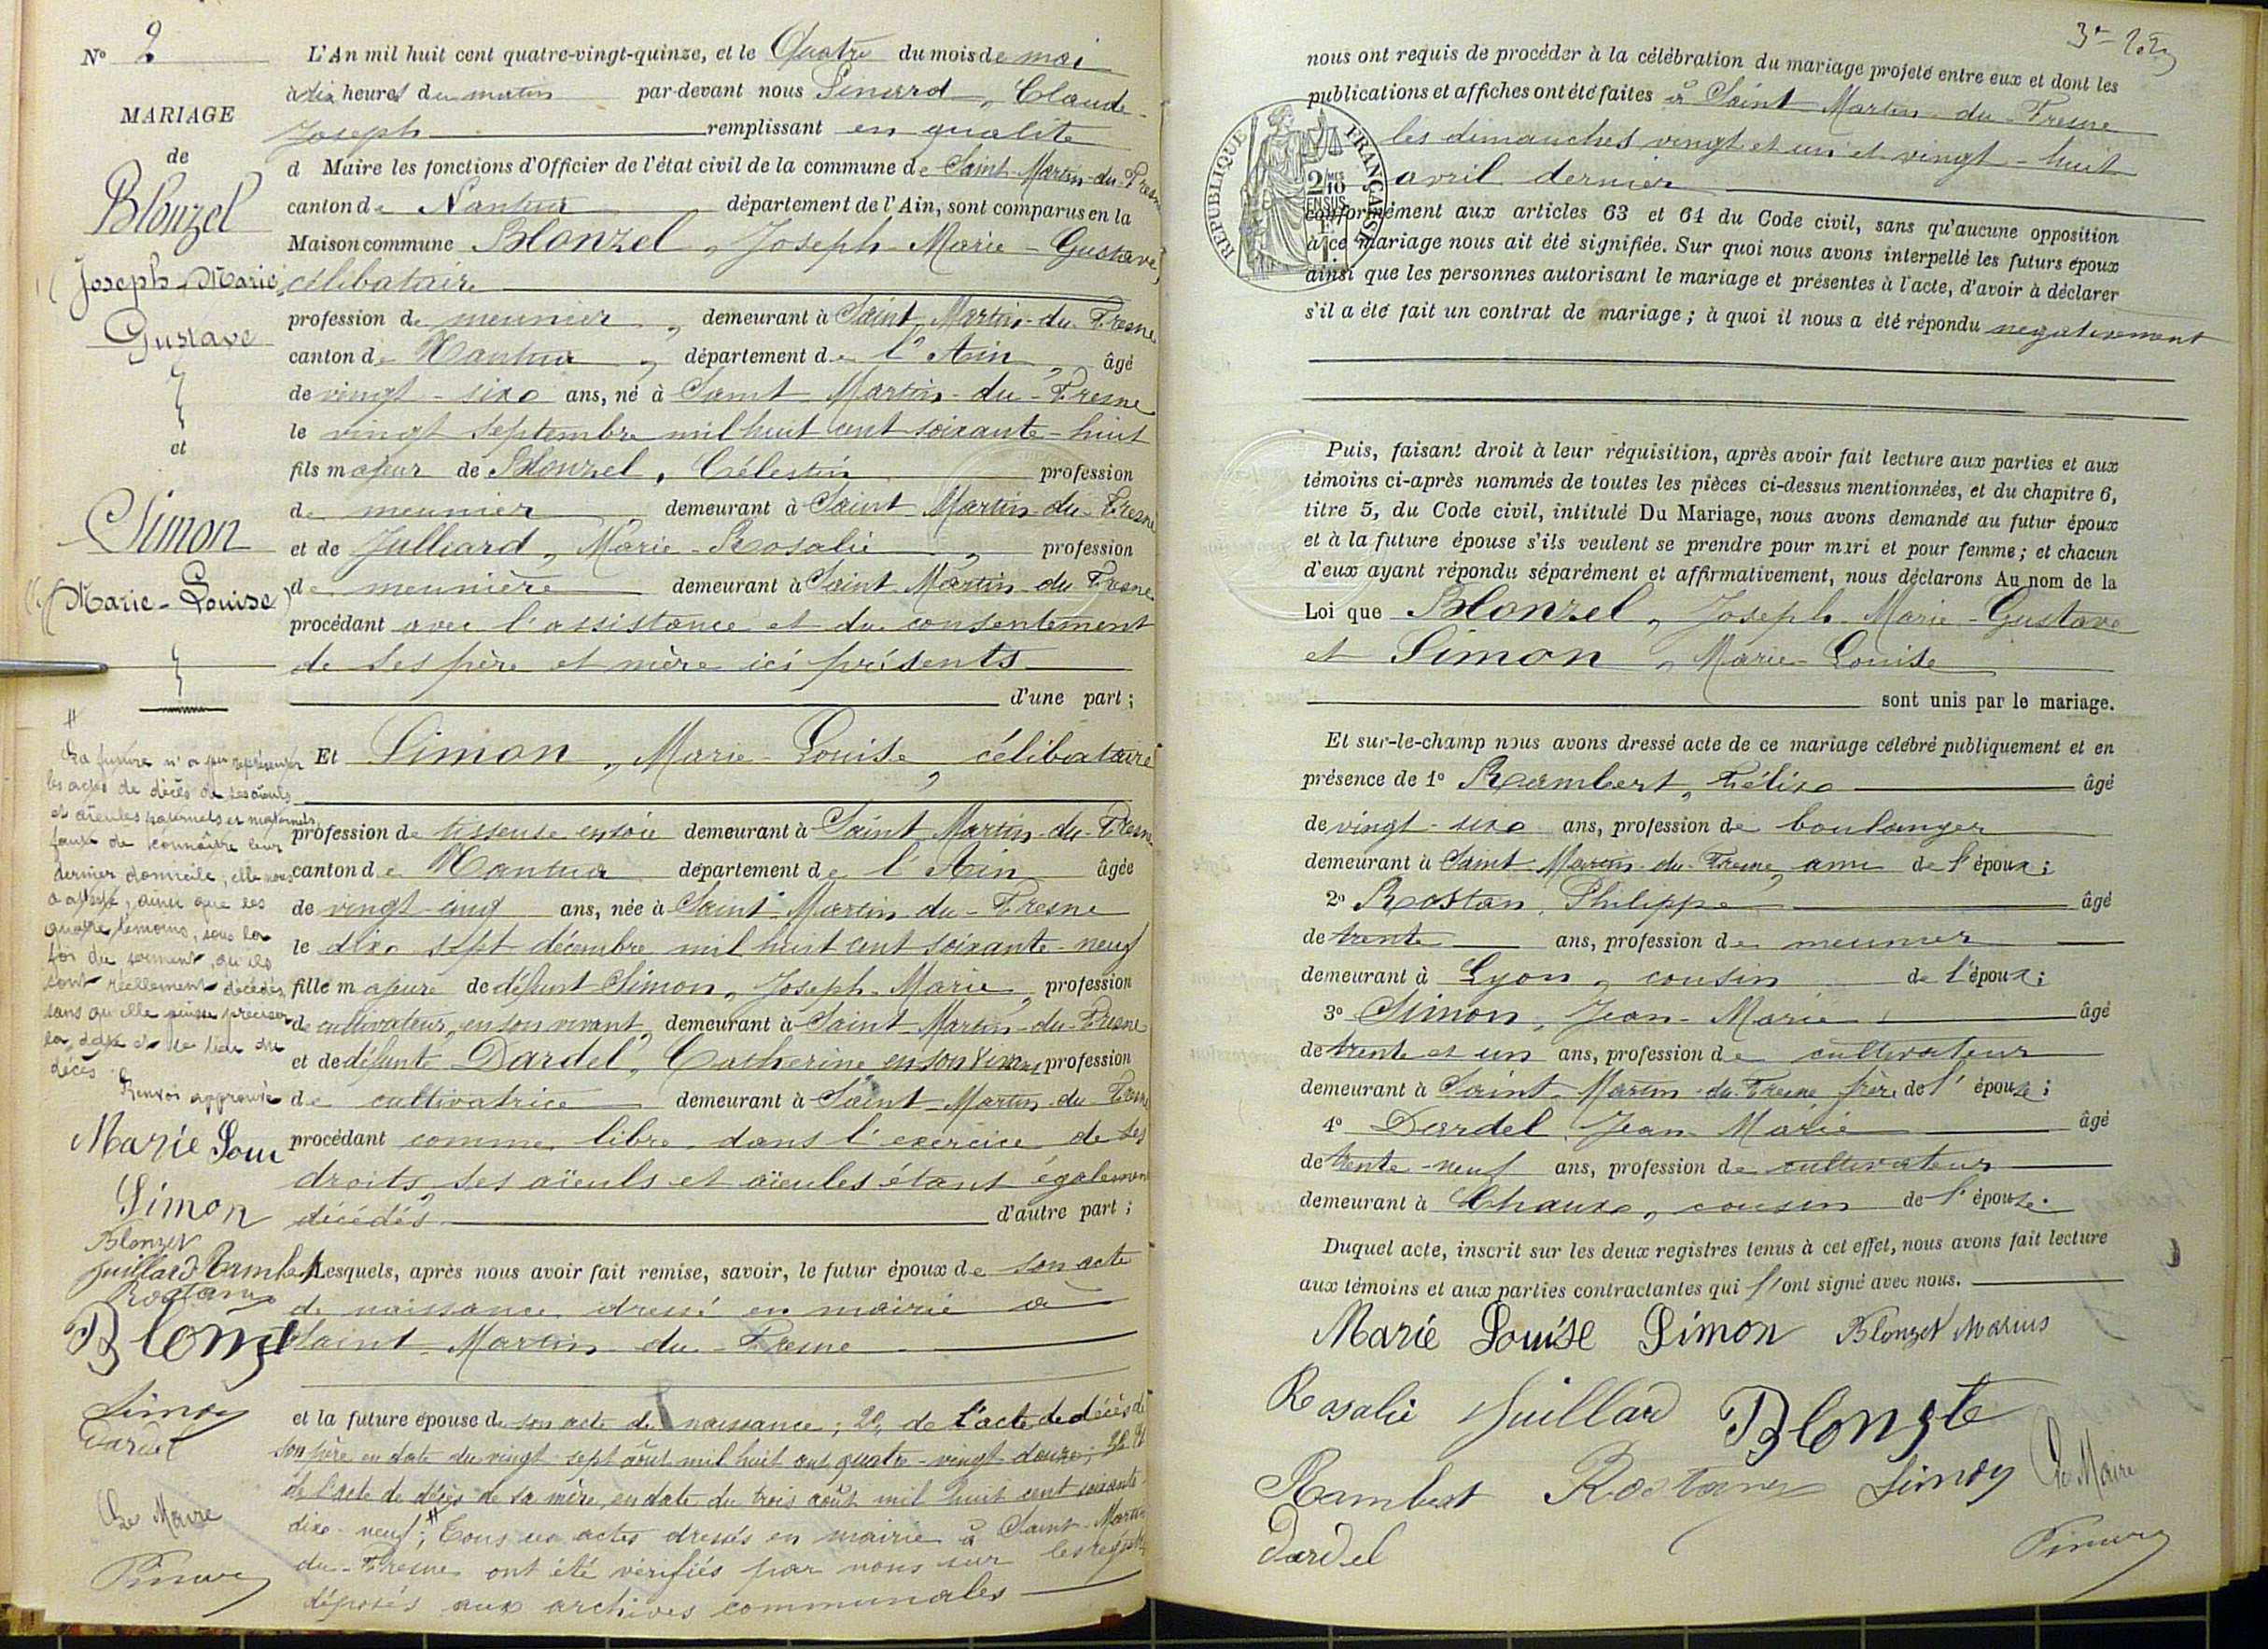 N° 2
MARIAGE
de
Blonzel
(Joseph-Marie
Gustave
et
Simon
(Marie-Louise)
#
La future n'a pu représenter
les actes de décès de ses aïeuls
et aïeules paternels et maternels
faute de connaître leur
dernier domicile, elle nous
a attesté, ainsi que les
quatre témoins, sous la
foi du serment, qu'ils
sont réellement décédés,
sans qu'elle puisse préciser
la date et le lieu du
décès.
Renvoi approuvé
Marie Loui
Simon
Blonzet
Juillard Rambert
Rostan
Blonzel
Simon
Dardel
Le Maire
Pinard
L'An mil huit cent quatre-vingt-quinze, et le Quatre du mois de mai
à dix heures du matin par-devant nous Pinard, Claude-
Joseph remplissant en qualité
d Maire les fonctions d'Officier de l'état civil de la commune de Saint-Martin-du-Fresne
canton de Nantua département de l'Ain, sont comparus en la
Maison commune Blonzel, Joseph-Marie-Gustave,
célibataire
profession de meunier, demeurant à Saint-Martin-du-Fresne
canton de Nantua, département de l'Ain, âgé
de vingt-six ans, né à Saint-Martin-du-Fresne
le vingt septembre mil huit cent soixante-huit
fils majeur de Blonzel, Célestin profession
de meunier demeurant à Saint Martin-du-Fresne
et de Julliard, Marie-Rosalie, profession
de meunière demeurant à Saint-Martin-du-Fresne
procédant avec l'assistance et du consentement
de ses père et mère ici présents
d'une part;
Et Simon, Marie-Louise, célibataire
profession de tisseuse en soie demeurant à Saint-Martin-du-Fresne
canton de Nantua département de l'Ain âgée
de vingt-cinq ans, née à Saint-Martin-du-Fresne
le dix-sept décembre mil huit cent soixante-neuf
fille majeure de défunt Simon, Joseph-Marie, profession
de cultivateur, en son vivant, demeurant à Saint-Martin-du-Fresne
et de défunte Dardel, Catherine en son vivant, profession
de cultivatrice demeurant à Saint-Martin-du-Fresne
procédant comme libre dans l'exercice de ses
droits, ses aïeuls et aïeules étant également
décédés d'autre part;
Lesquels, après nous avoir fait remise, savoir, le futur époux de son acte
de naissance dressé en mairie à
Saint-Martin-du-Fresne
et la future épouse de son acte de naissance; 2°, de l'acte de décès de
son père en date du vingt-sept août mil huit cent quatre-vingt-douze; 3°
de l'acte de décès de sa mère, en date du trois août mil huit cent soixante-
dix-neuf; # Tous ces actes dressés en mairie à Saint-Martin
du-Fresne ont été vérifiés par nous sur les registres
déposés aux archives communales
nous ont requis de procéder à la célébration du mariage projeté entre eux et dont les
publications et affiches ont été faites à Saint Martin-du-Fresne
les dimanches vingt et un et vingt-huit
avril dernier
RÉPUBLIQUE FRANÇAISE
2/10 EN SUS
conformément aux articles 63 et 64 du Code civil, sans qu'aucune opposition
à ce mariage nous ait été signifiée. Sur quoi nous avons interpellé les futurs époux
ainsi que les personnes autorisant le mariage et présentes à l'acte, d'avoir à déclarer
s'il a été fait un contrat de mariage; à quoi il nous a été répondu négativement
Puis, faisant droit à leur réquisition, après avoir fait lecture aux parties et aux
témoins ci-après nommés de toutes les pièces ci-dessus mentionnées, et du chapitre 6,
titre 5, du Code civil, intitulé Du Mariage, nous avons demandé au futur époux
et à la future épouse s'ils veulent se prendre pour mari et pour femme; et chacun
d'eux ayant répondu séparément et affirmativement, nous déclarons Au nom de la
Loi que Blonzel, Joseph-Marie-Gustave
et Simon, Marie-Louise
sont unis par le mariage.
Et sur-le-champ nous avons dressé acte de ce mariage célébré publiquement et en
présence de 1° Rambert, Félix âgé
de vingt-six ans, profession de boulanger
demeurant à Saint-Martin-du-Fresne, ami de l'époux;
2° Rostan, Philippe âgé
de trente ans, profession de meunier
demeurant à Lyon, cousin de l'époux;
3° Simon, Jean-Marie âgé
de trente et un ans, profession de cultivateur
demeurant à Saint-Martin-du-Fresne frère de l'épouse;
4° Dardel, Jean-Marie âgé
de trente-neuf ans, profession de cultivateur
demeurant à Chaux, cousin de l'épouse.
Duquel acte, inscrit sur les deux registres tenus à cet effet, nous avons fait lecture
aux témoins et aux parties contractantes qui l'ont signé avec nous.
Marie Louise Simon Blonzet Marius
Rosalie Juillard Blonzte
Rambert Rostan Simon Le Maire
Dardel Pinard